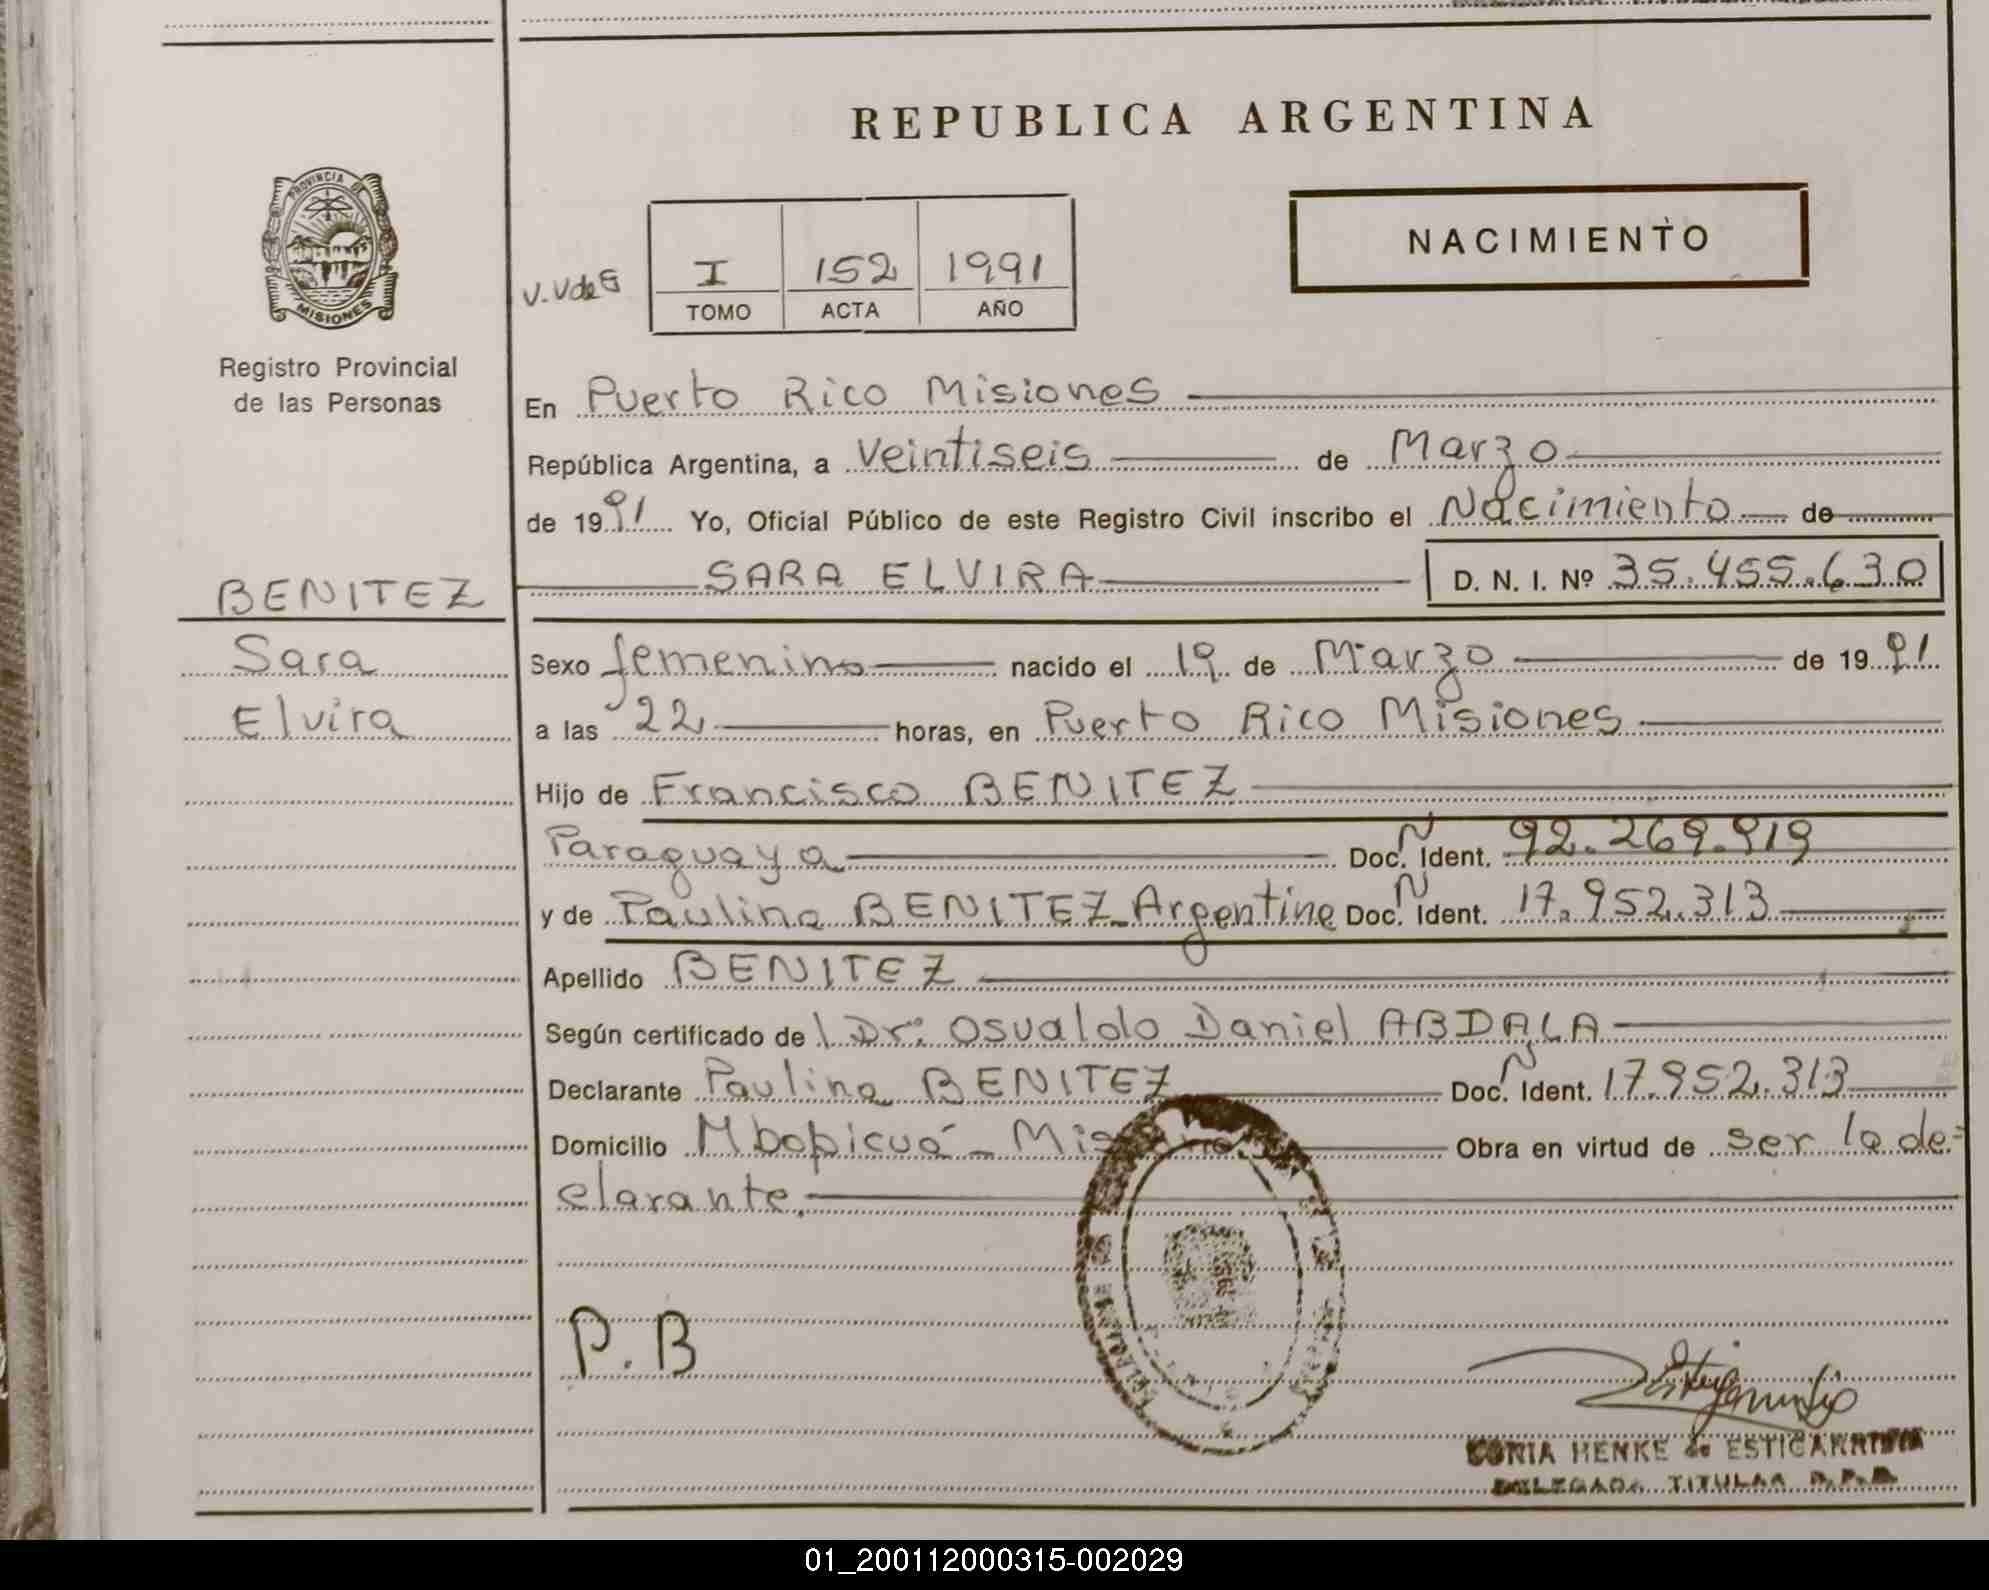 REPUBLICA ARGENTINA
PROVINCIA DE
MISIONES
Registro Provincial
de las Personas
NACIMIENTO
V.VdeG
I 152 1991
TOMO ACTA AÑO
En Puerto Rico Misiones
República Argentina, a Veintiseis de Marzo
de 1991 Yo, Oficial Público de este Registro Civil inscribo el Nacimiento de
BENITEZ
SARA ELVIRA D. N. I. Nº 35.455.630
Sara
Elvira
Sexo femenino nacido el 19 de Marzo de 1991
a las 22 horas, en Puerto Rico Misiones
Hijo de Francisco BENITEZ
Paraguaya Doc. N Ident. 92.269.919
y de Paulina BENITEZ - Argentina Doc. N Ident. 17.952.313
Apellido BENITEZ
Según certificado de l Dr: Osvaldo Daniel ABDALA
Declarante Paulina BENITEZ Doc. N Ident. 17.952.313
Domicilio Mbopicuá - Obra en virtud de ser la de=
clarante.
P.B
SONIA HENKE de
DELEGADA TITULAR R.P.P.
01_200112000315-002029